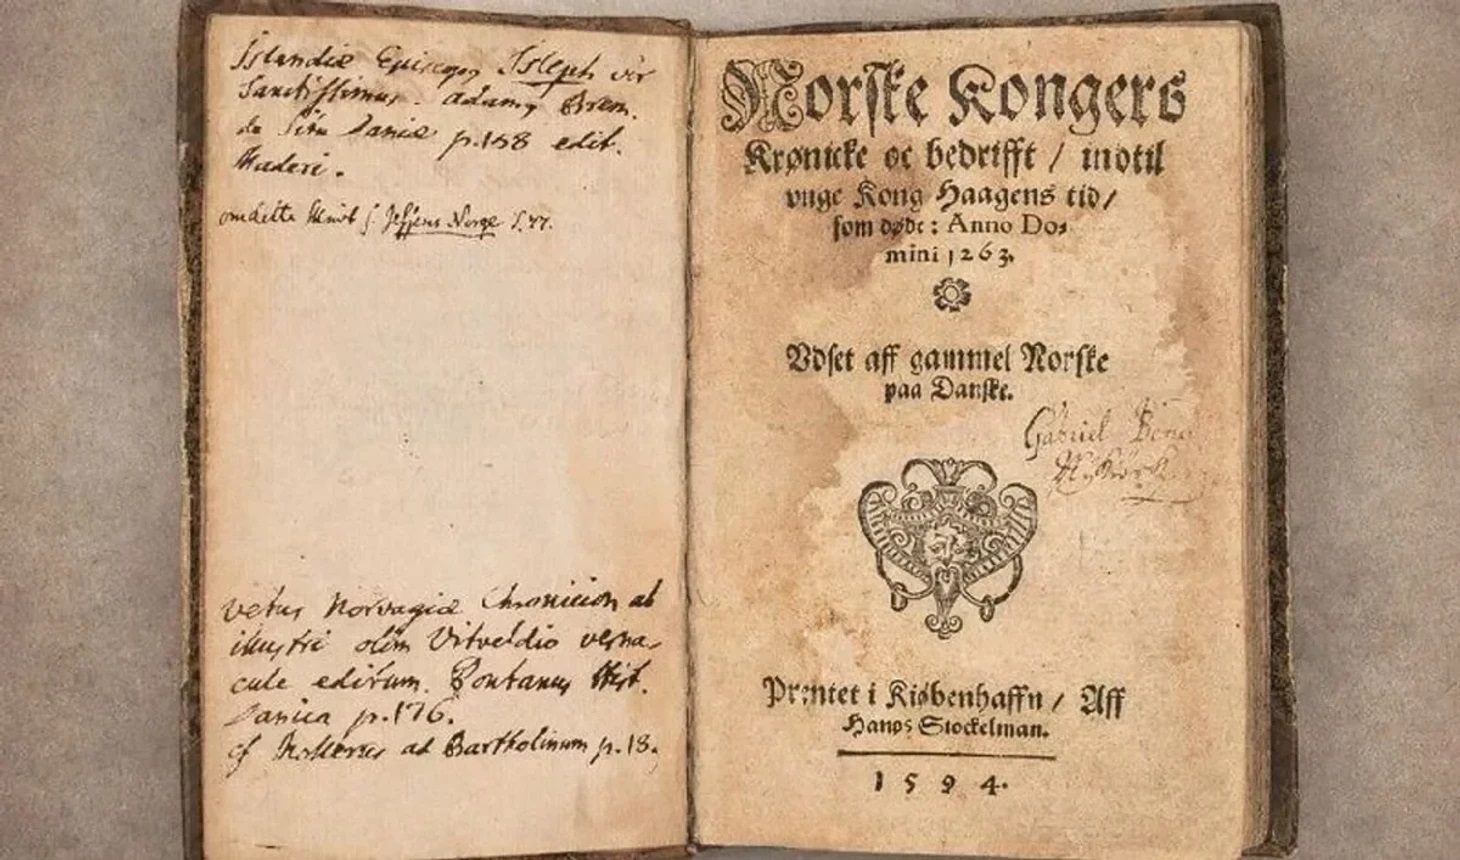 Islandiæ Episcopus Isleph vir
Sanctissimus. Adamus Brem.
de Situ Daniæ p.158 edit.
Maderi.
om dette Skrivt
Norge S. 77.
Vetus Norvagiæ Chronicion ab
illustri olim Vitveldio verna-
cule editum. Pontanus Hist.
Danica p.176.
cf Mollerus ad Bartholinum p.18.
Norſke Kongers
Krønicke oc bedrifft / indtil
vnge Kong Haagens tid /
ſom døde : Anno Do-
mini 1263.
Vdſet aff gammel Norſke
paa Danſke.
Gabriel
Prentet i Kiøbenhaffn / Aff
Hanss Stockelman.
1594.